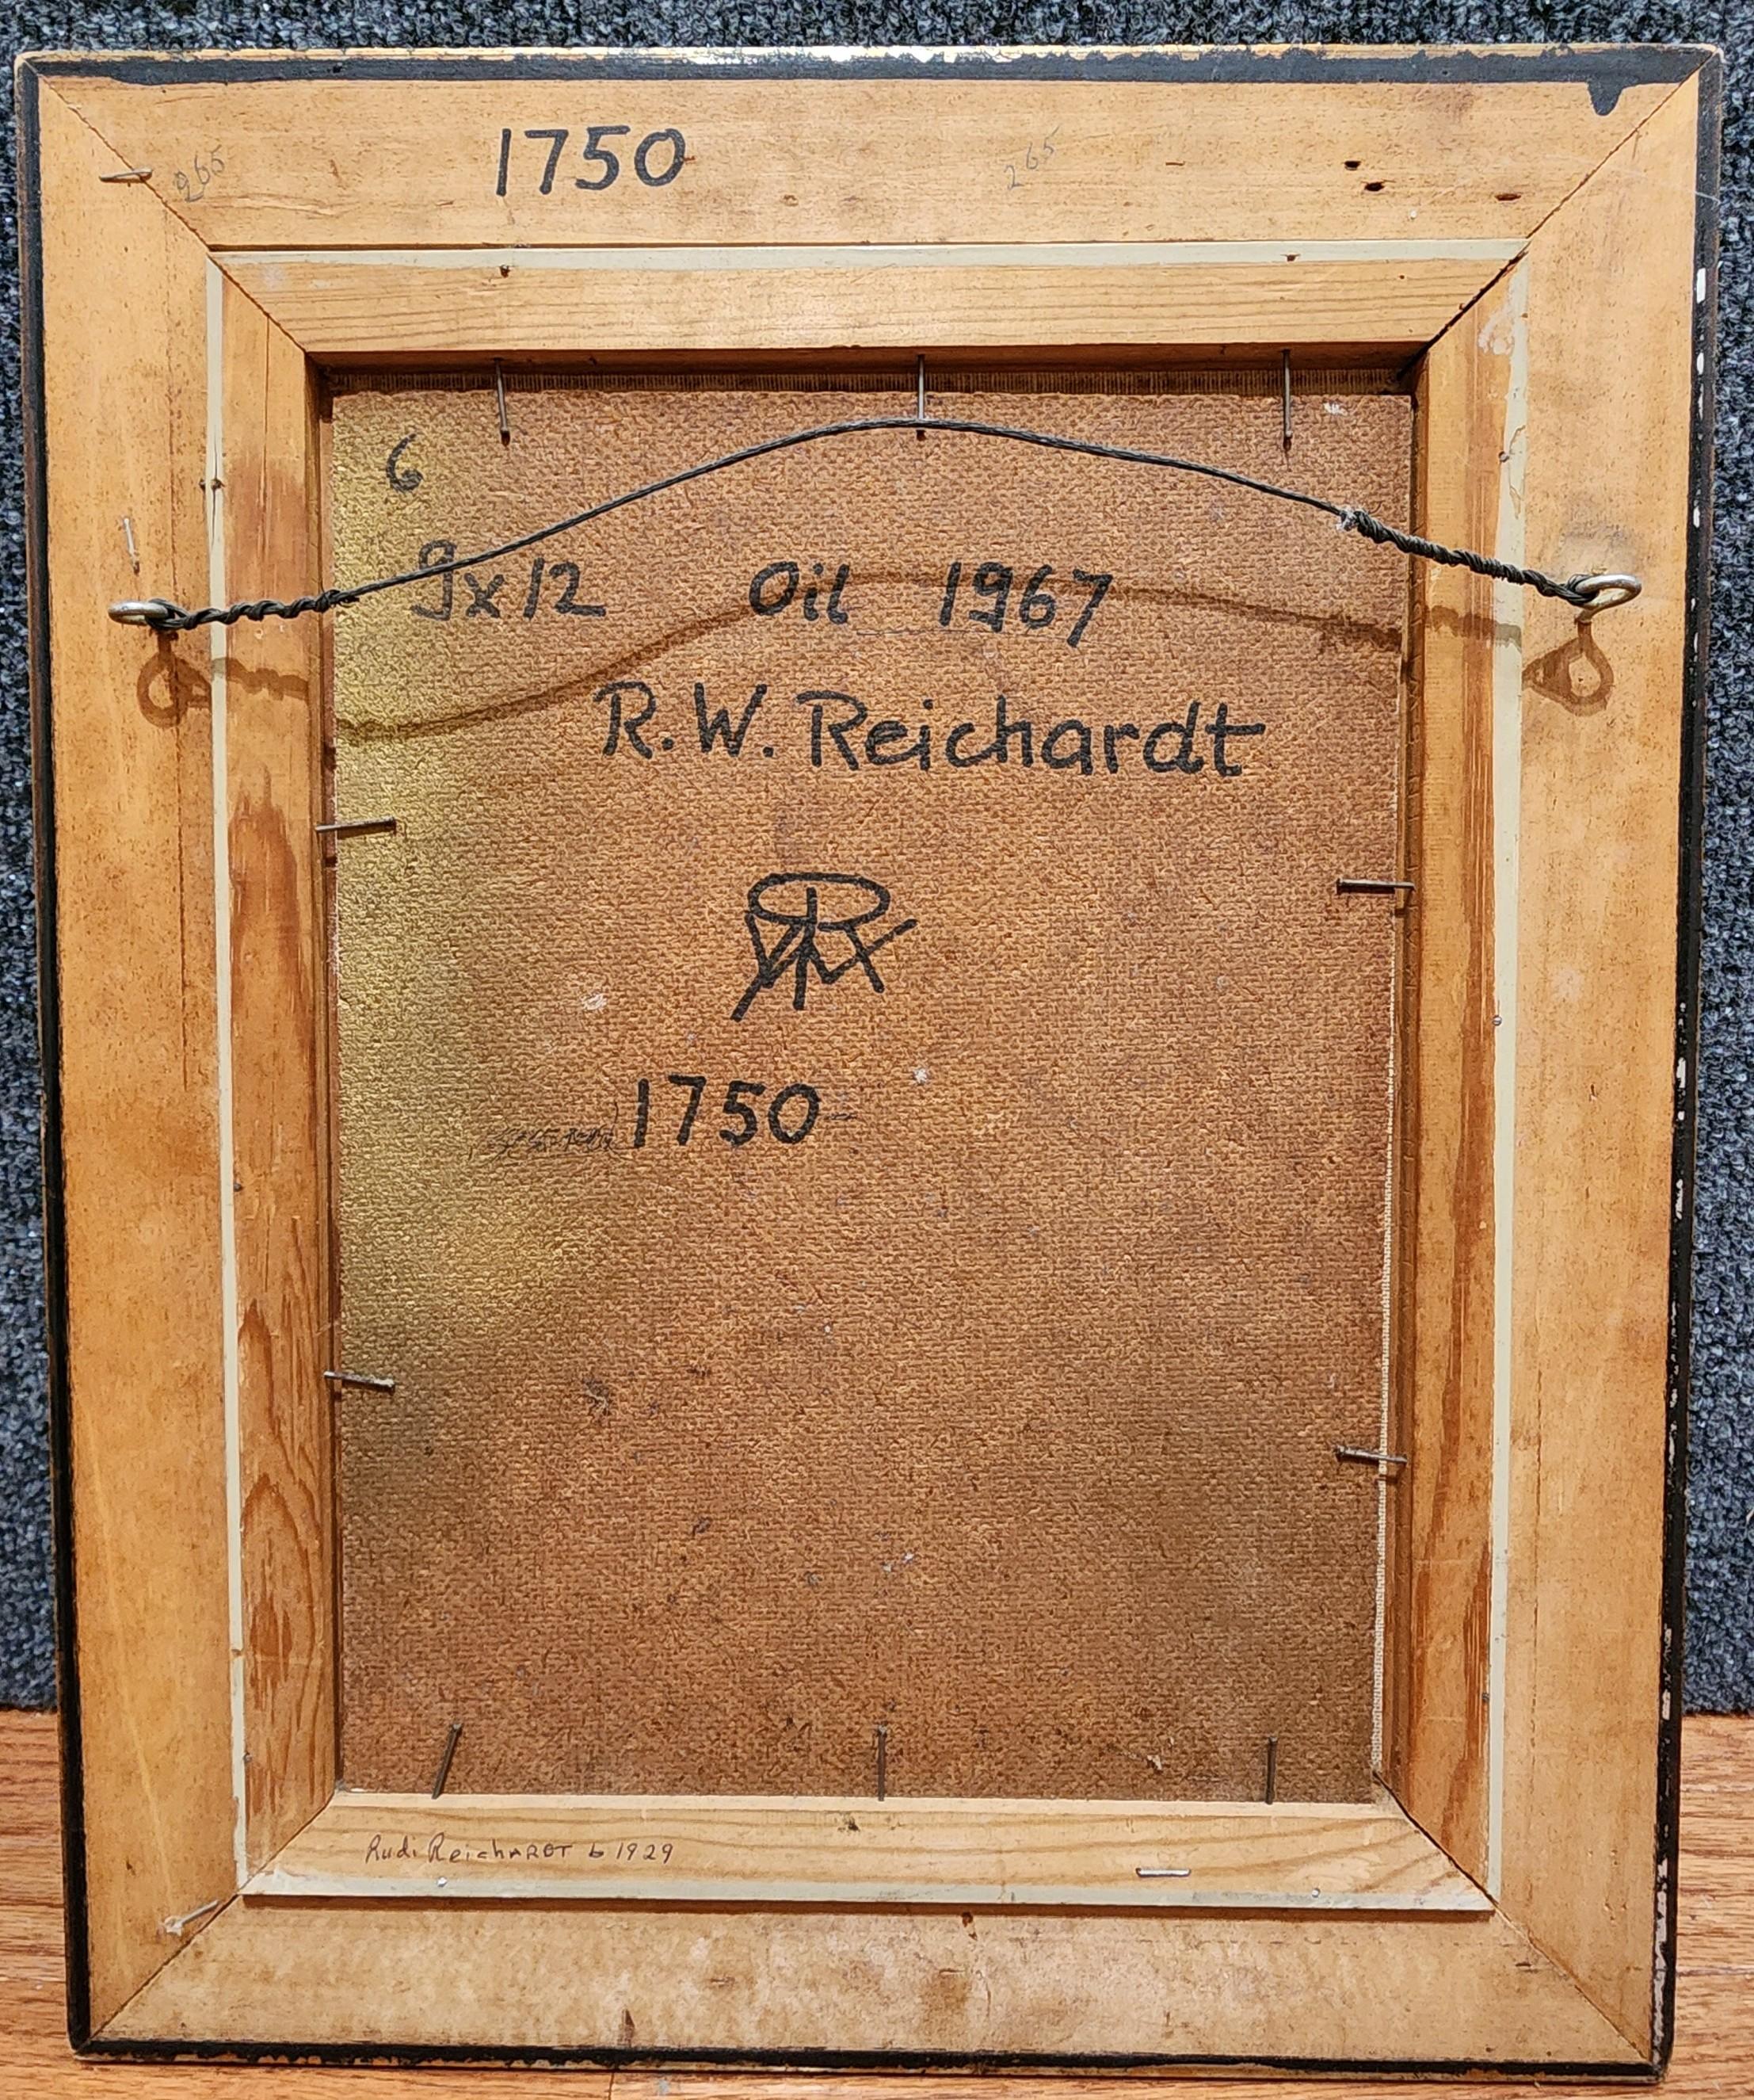 265 1750 265
6
9x12 Oil 1967
R.W. Reichardt
1750
Rudi ReichARDT b 1929